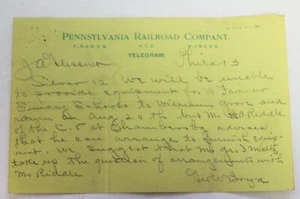 PENNSYLVANIA RAILROAD COMPANY.
TELEGRAM.
Phila 3
We will be unable
to provide equipment for
Sunday Schools to Williams Grove and
return on Aug 25th but Mr Riddle
of the C.V. at Chambersburg advises
that he can arrange to furnish equip-
ment. We suggest that Mr Geo.
take up the question of arrangements with
Mr Riddle
Geo W Boyd